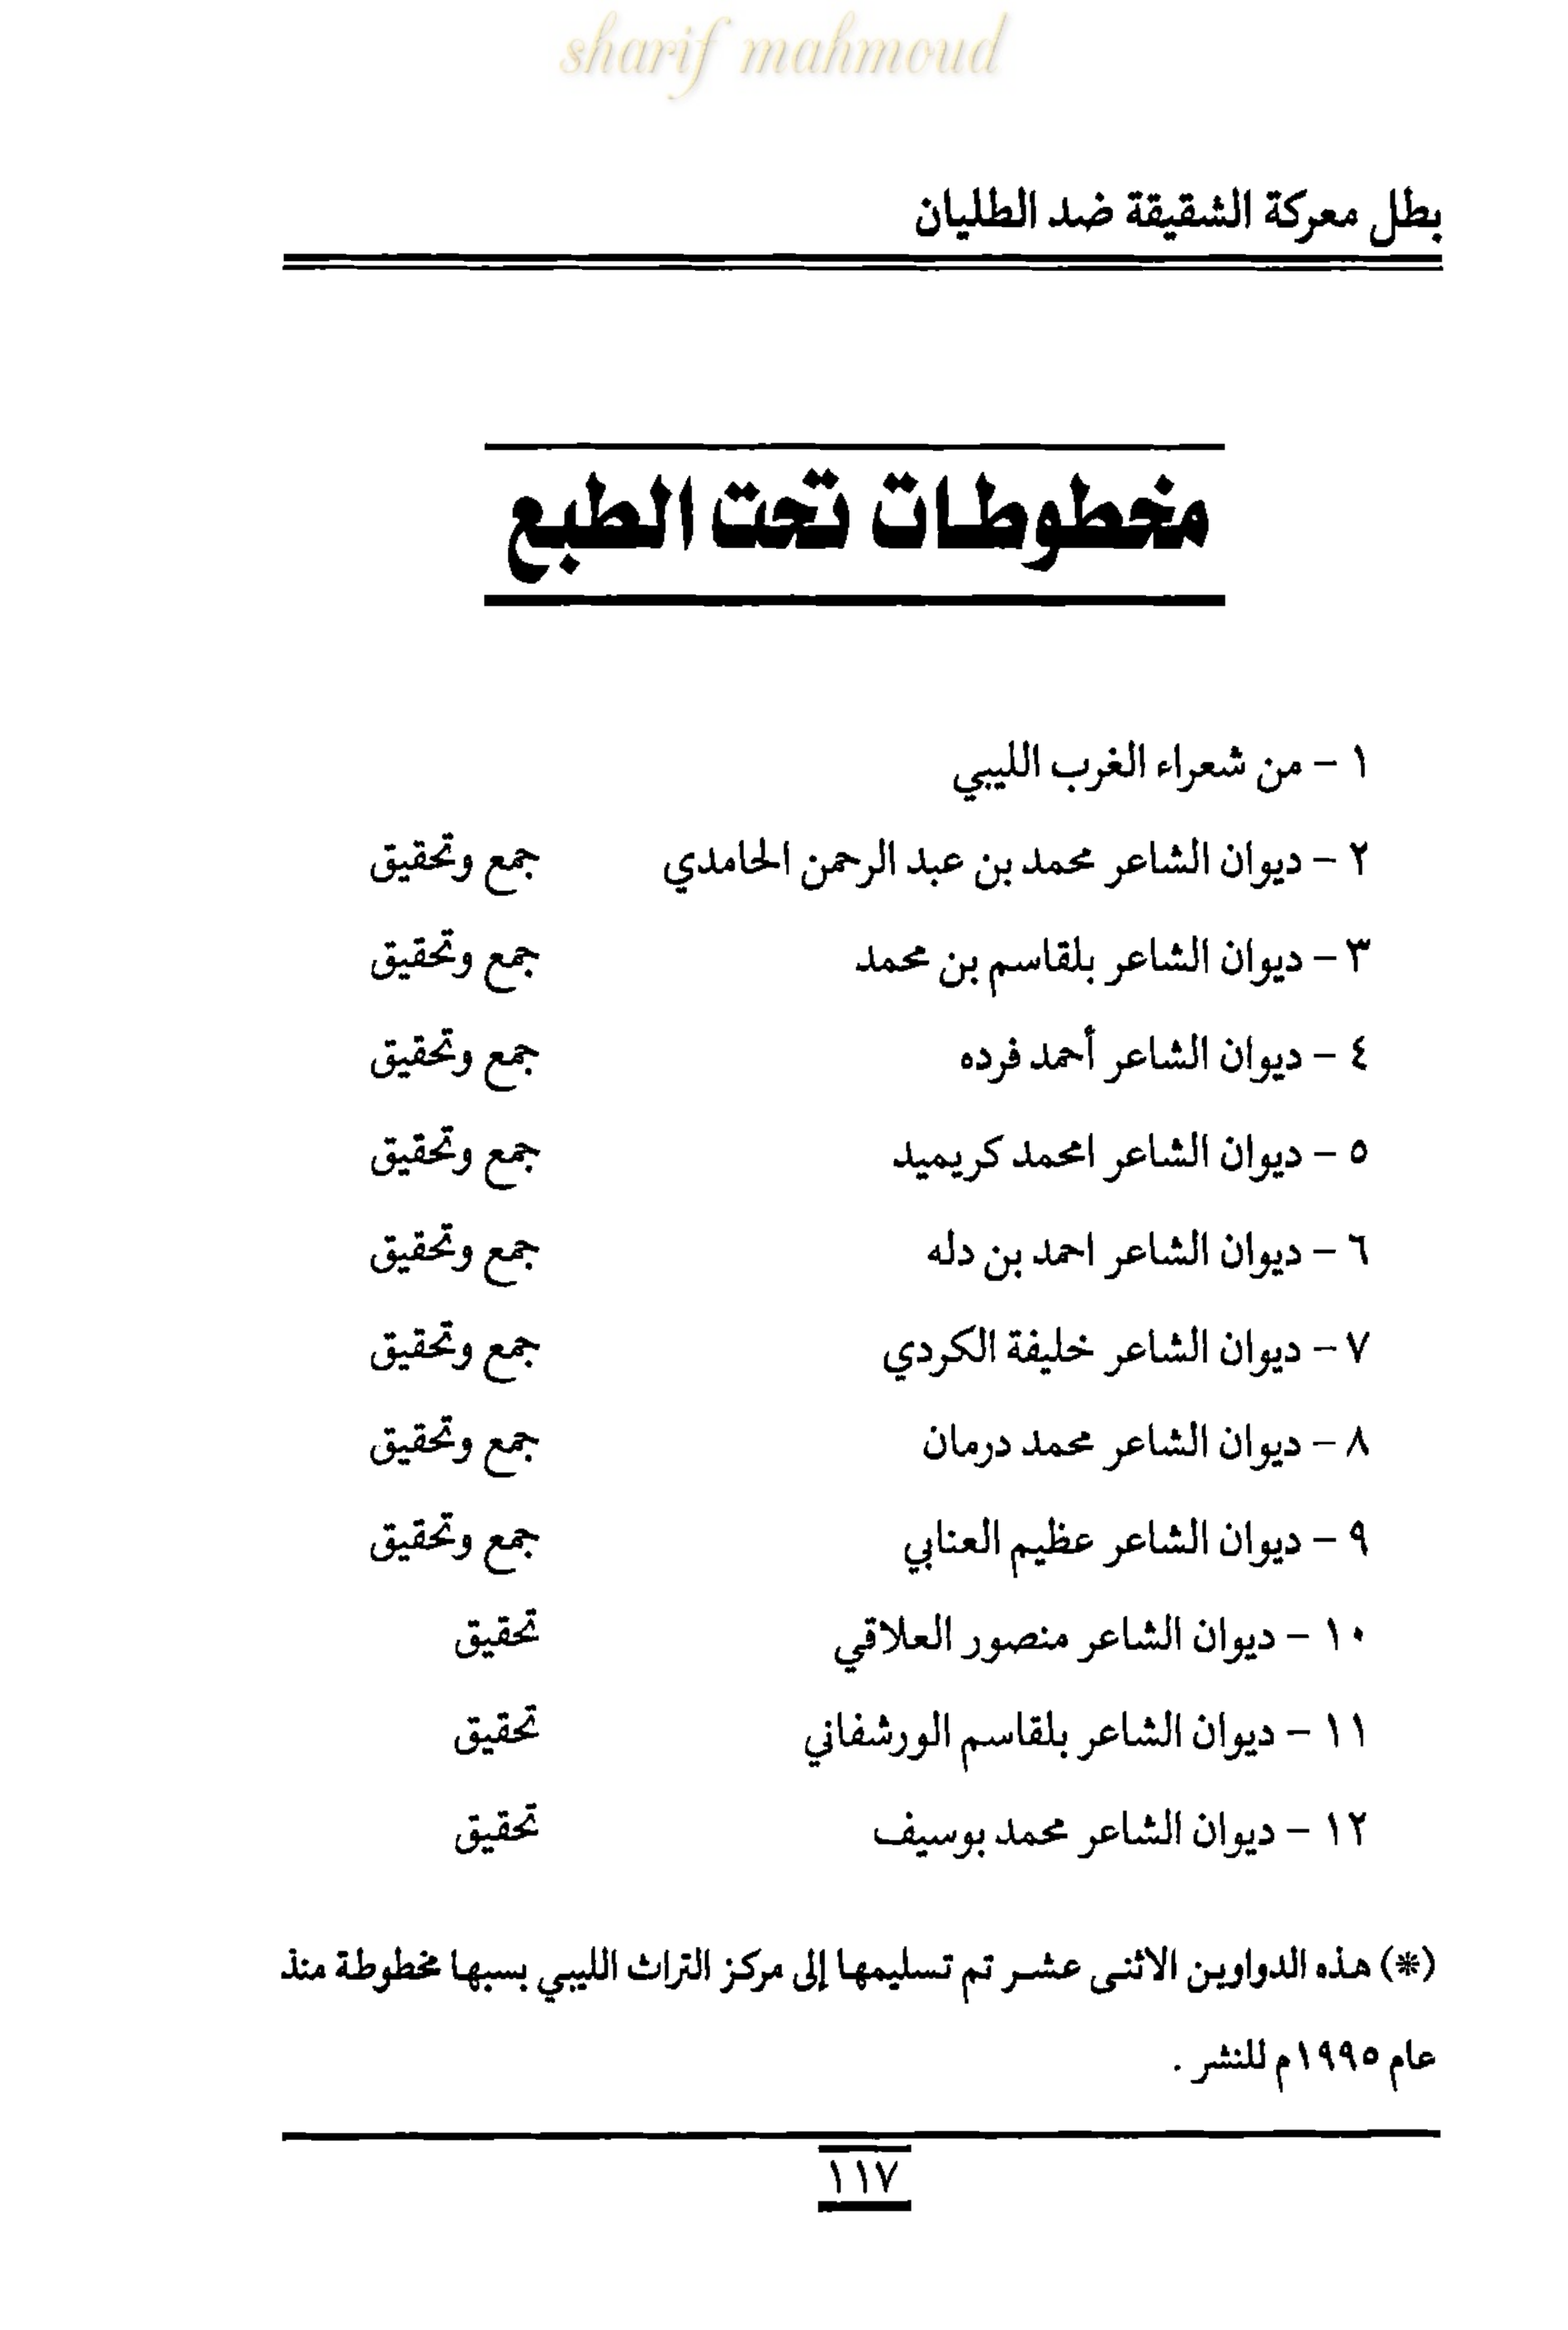 sharif mahmoud
بطل معركة الشقيقة ضد الطليان
مخطوطات تحت الطبع
١ - من شعراء الغرب الليبي
٢ - ديوان الشاعر محمد بن عبد الرحمن الحامدي جمع وتحقيق
٣ - ديوان الشاعر بلقاسم بن محمد جمع وتحقيق
٤ - ديوان الشاعر أحمد فرده جمع وتحقيق
٥ - ديوان الشاعر امحمد كريميد جمع وتحقيق
٦ - ديوان الشاعر احمد بن دله جمع وتحقيق
٧ - ديوان الشاعر خليفة الكردي جمع وتحقيق
٨ - ديوان الشاعر محمد درمان جمع وتحقيق
٩ - ديوان الشاعر عظيم العنابي جمع وتحقيق
١٠ - ديوان الشاعر منصور العلاقي تحقيق
١١ - ديوان الشاعر بلقاسم الورشفاني تحقيق
١٢ - ديوان الشاعر محمد بوسيف تحقيق
(*) هذه الدواوين الاثنى عشر تم تسليمها إلى مركز التراث الليبي بسبها مخطوطة منذ
عام ١٩٩٥م للنشر .
١١٧